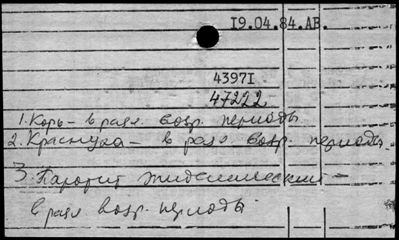 19.04.84.АВ.
43971
47222
1. Корь – в разл. возр. периоды
2. Краснуха – в разл. возр. периоды
3. Паротит эпидемический –
в разл возр. периоды